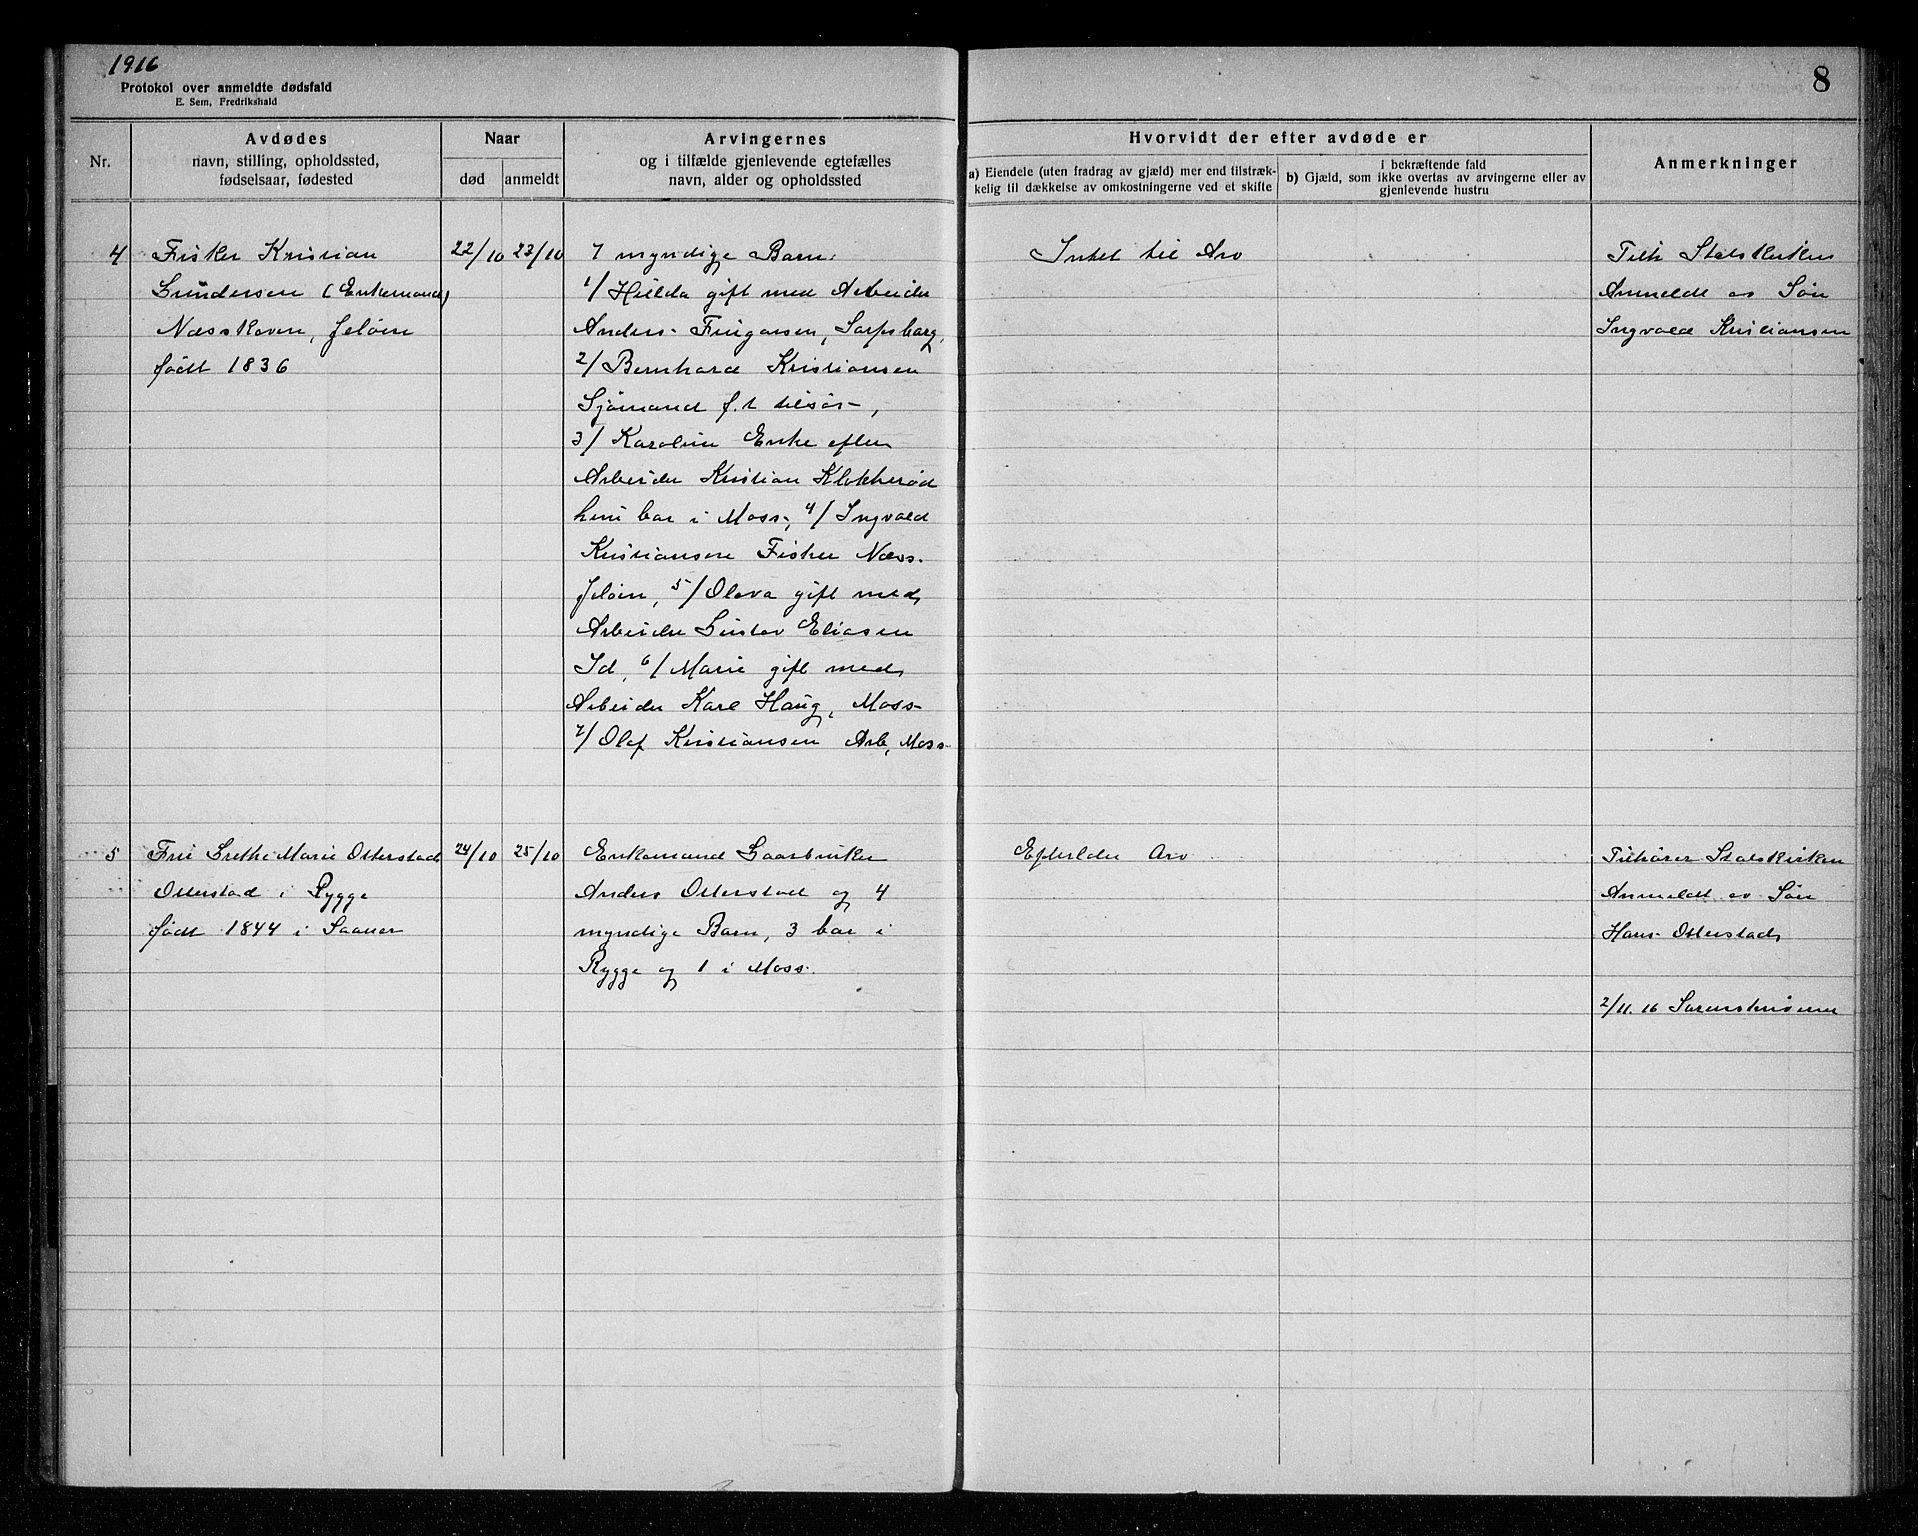 1916
Protokol over anmeldte dødsfald
E. Sem, Fredrikshald
8
Nr.
Avdødes
navn, stilling, opholdssted,
fødselsaar, fødested
Naar
død
anmeldt
Arvingernes
og i tilfælde gjenlevende egtefælles
navn, alder og opholdssted
Hvorvidt der efter avdøde er
a) Eiendele (uten fradrag av gjæld) mer end tilstræk-
kelig til dækkelse av omkostningerne ved et skifte
i bekræftende fald
b) Gjæld, som ikke overtas av arvingerne eller av
gjenlevende hustru
Anmerkninger
4
Fisker Kristian
Gundersen (Enkemand)
Næsskoven, Jeløen
født 1836
22/10
23/10
7 myndige Barn:
1/ Hulda gift med Arbeider
Anders Sarpsborg,
2/ Bernhard Kristiansen
Sjømand f.t tilsøs,
3/ Karoline Enke efter
Arbeider Kristian Klokkerød
bor i Moss, 4/ Ingvald
Kristiansen Fisker Næss
Jeløen, 5/ Olava gift med
Arbeider Gustav Eliasen
Id, 6/ Marie gift med
Arbeider Karl Haug, Moss
7/ Olaf Kristiansen Arb, Moss
Intet til Arv
Tilh Statskirken
Anmeldt av Søn
Ingvald Kristiansen
5
Fru Grethe Marie Otterstad
Otterstad i Rygge
født 1844 i Saaner
24/10
25/10
Enkemand Gaardbruker
Anders Otterstad og 4
myndige Barn, 3 bor i
Rygge og 1 i Moss.
Efterlader Arv
Tilhører Statskirken
Anmeldt av Søn
Hans Otterstad
2/11.16 Sorenskriveren